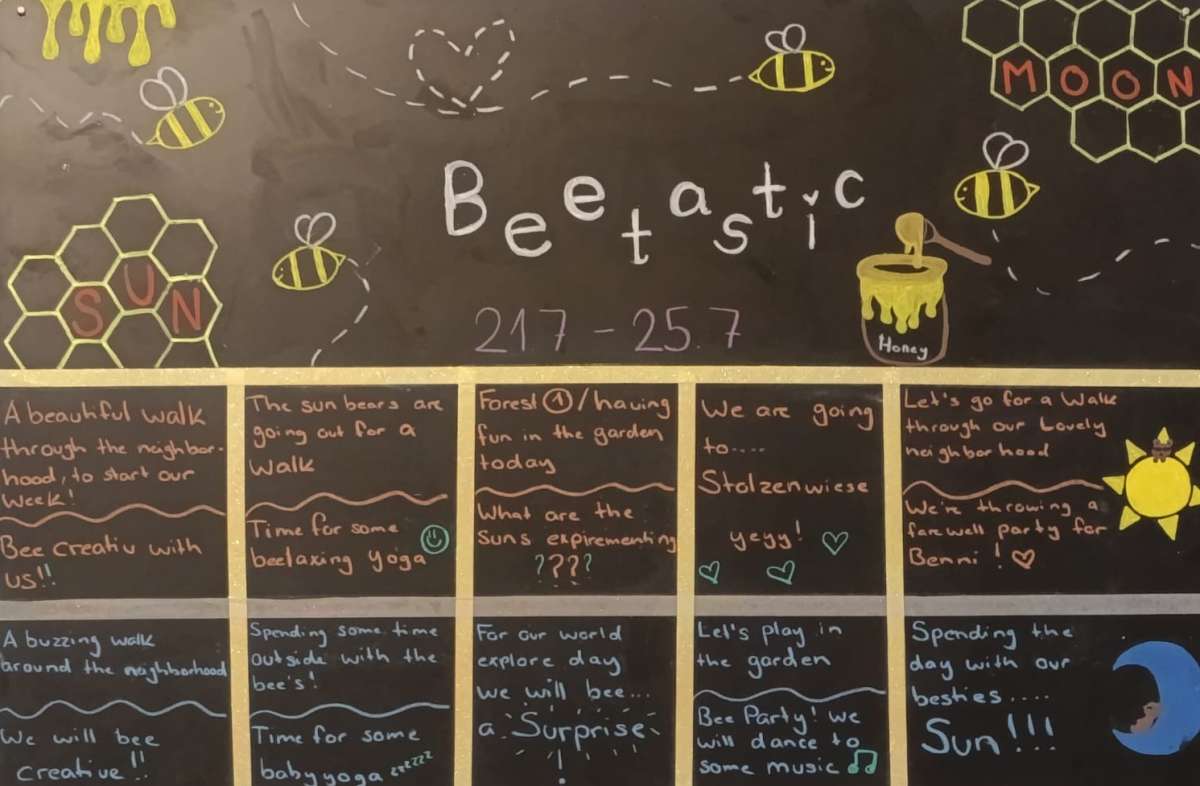 MOON
Beetastic
SUN
21.7 - 25.7
Honey
A beautiful walk
through the neighbor-
hood, to start our
week!
Bee creativ with
us!!
The sun bears are
going out for a
walk
Time for some
beelaxing yoga
Forest ① / having
fun in the garden
today
What are the
Suns expirementing
????
We are going
to....
Stolzenwiese
yeyy!
Let's go for a walk
through our lovely
neighborhood
We're throwing a
farewell party for
Benni!
A buzzing walk
around the neighborhood
We will bee
creative!!
Spending some time
outside with the
bee's!
Time for some
baby yoga zzzzzz
For our world
explore day
we will bee...
a Surprise
!
Let's play in
the garden
Bee Party! we
will dance to
some music
Spending the
day with our
besties....
Sun!!!